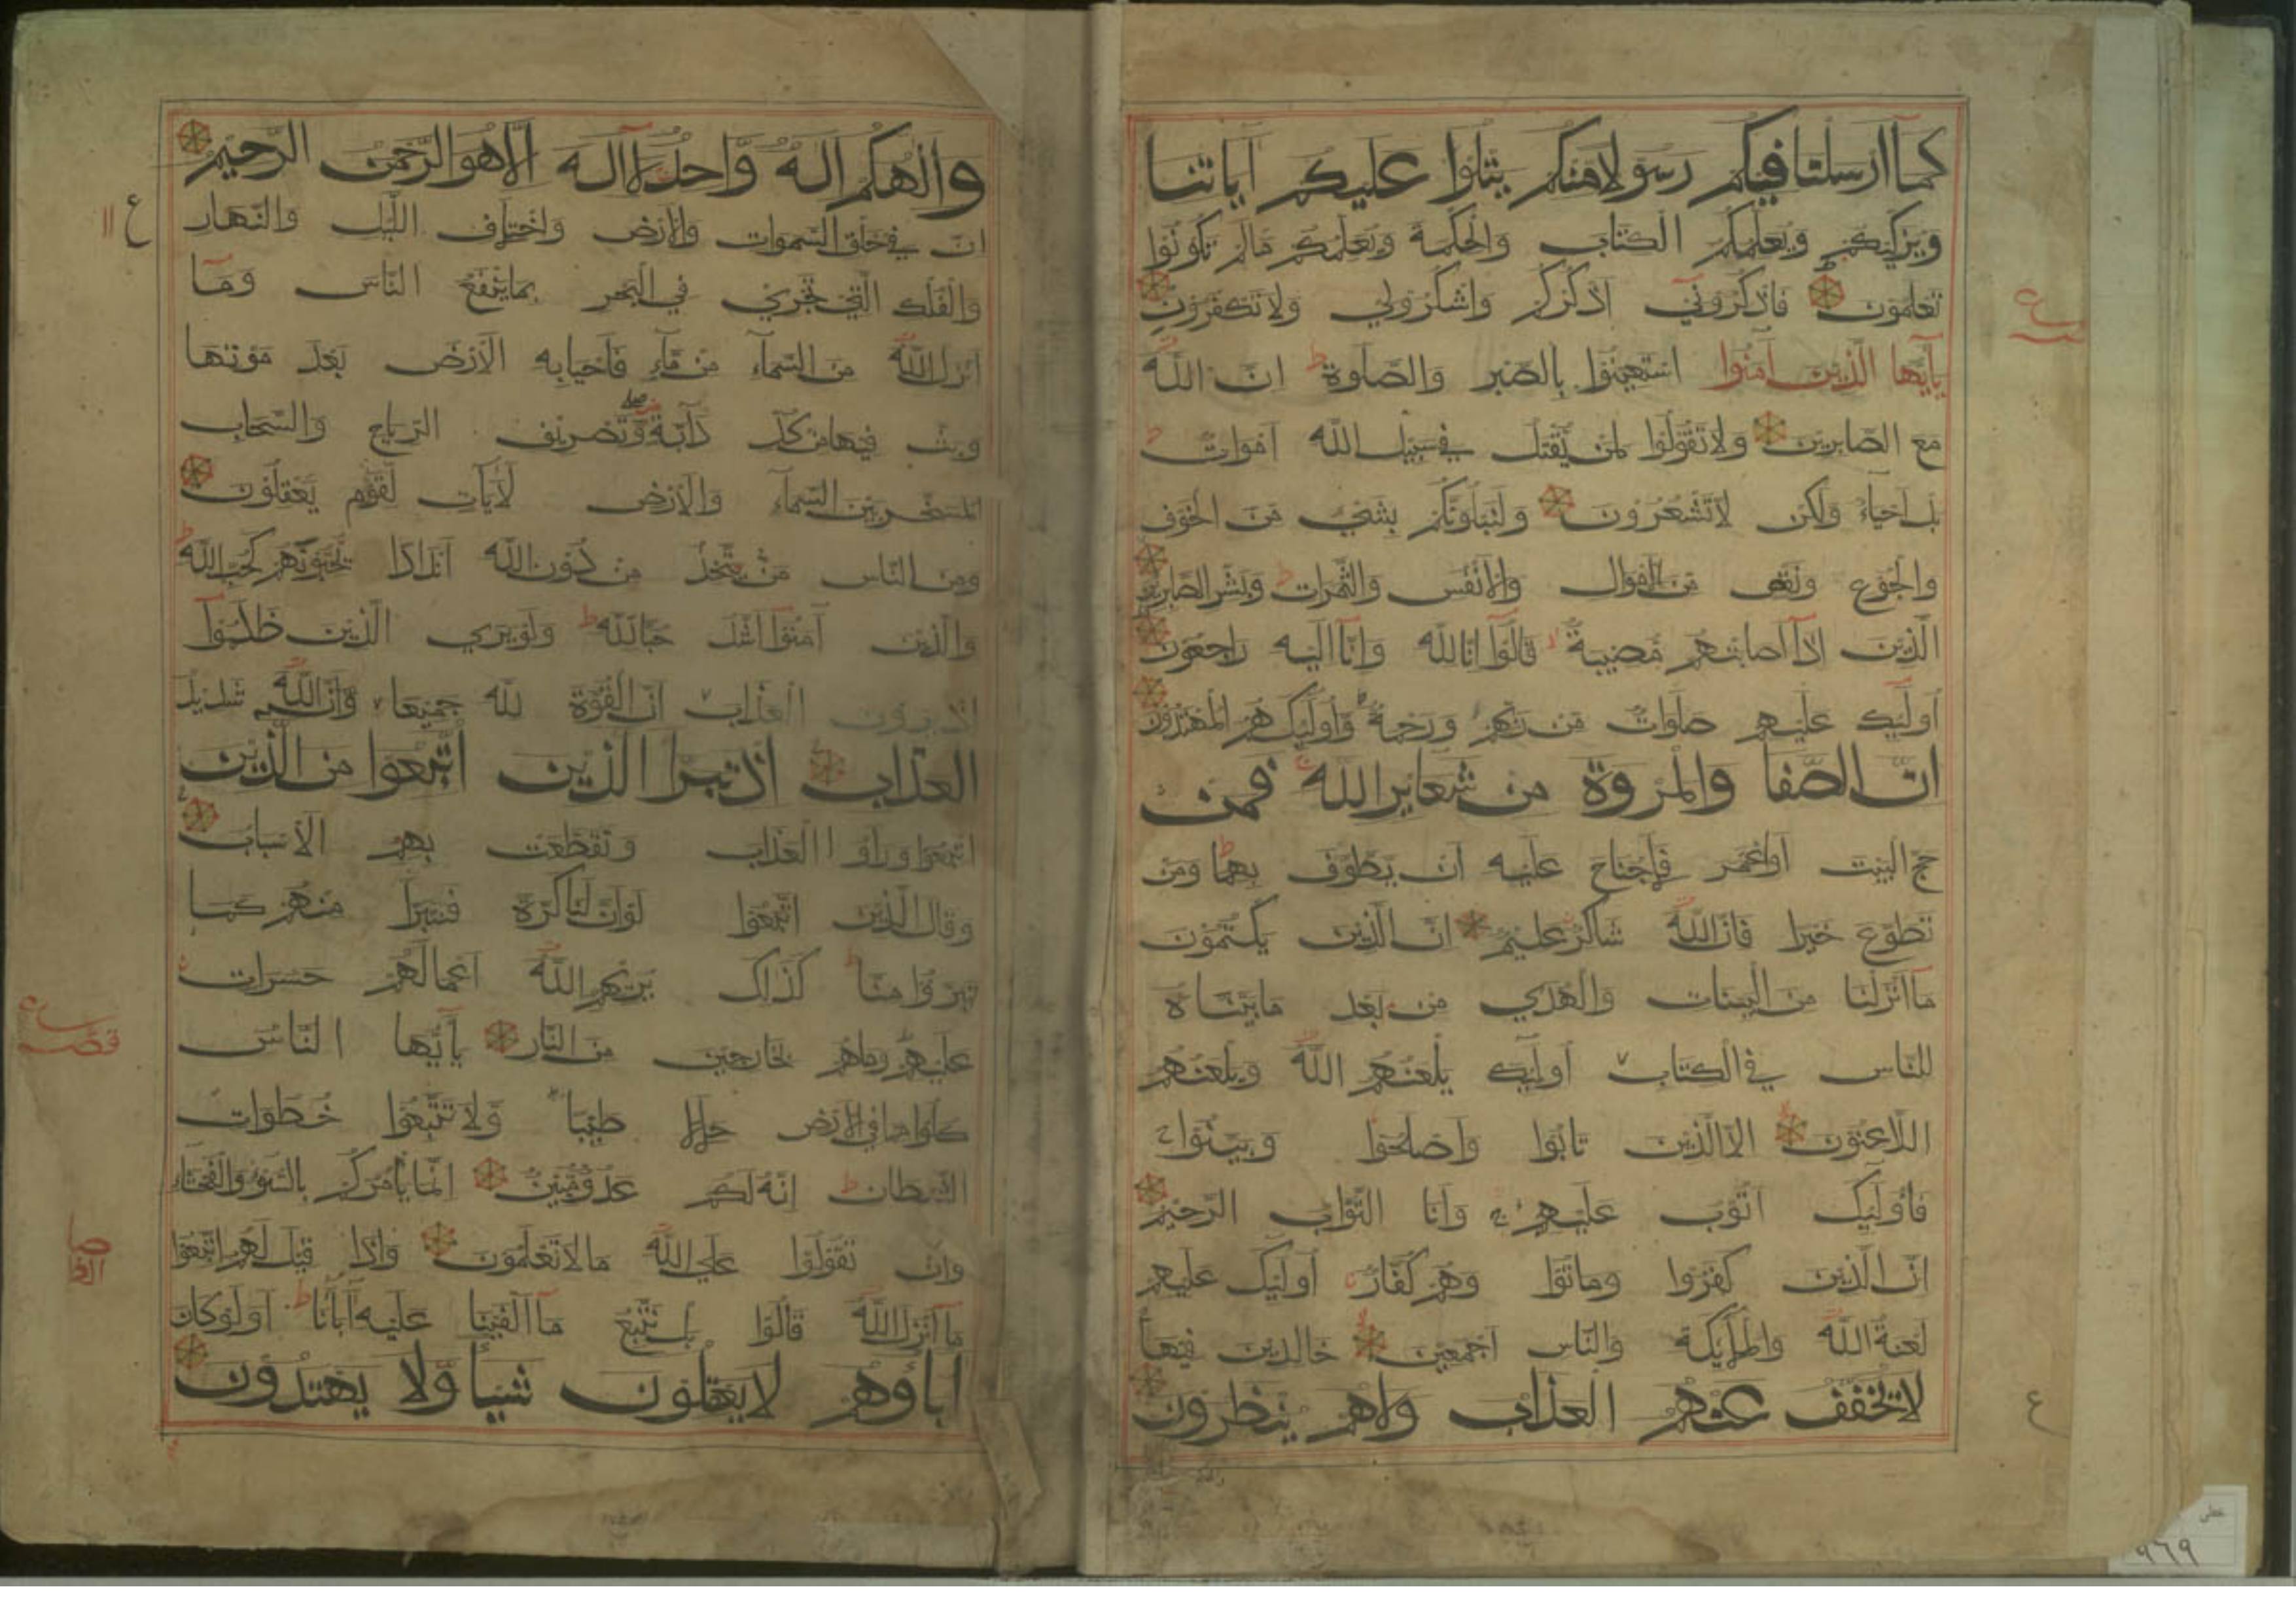 كمآ ارسلنا فيكم رسولا منكم يتلوا عليكم آياتنا
ويزكيكم ويعلمكم الكتاب والحكمة ويعلمكم مالم تكونوا
تعلمون فاذكروني اذكركم واشكرولي ولا تكفرون
يآيها الذين آمنوا استعينوا بالصبر والصلوة ط ان الله
مع الصابرين ولا تقولوا لمن يقتل في سبيل الله اموات
بل احياء ولكن لا تشعرون ولنبلونكم بشئ من الخوف
والجوع ونقص من الاموال والانفس والثمرات وبشر الصابرين
الذين اذآ اصابتهم مصيبة قالوآ انا لله وانآ اليه راجعون
اولئك عليهم صلوات من ربهم ورحمة واولئك هم المهتدون
ان الصفا والمروة من شعاير الله فمن
حج البيت اواعتمر فلاجناح عليه ان يطوف بهما ط ومن
تطوع خيرا فان الله شاكر عليم ان الذين يكتمون
مآ انزلنا من البينات والهدي من بعد مابيناه
للناس في الكتاب اولئك يلعنهم الله ويلعنهم
اللاعنون الا الذين تابوا واصلحوا وبينوا
فاولئك اتوب عليهم ج وانا التواب الرحيم
ان الذين كفروا وماتوا وهم كفار اولئك عليهم
لعنة الله والملئكة والناس اجمعين خالدين فيها
لا يخفف عنهم العذاب ولاهم ينظرون
ع
والهكم اله واحد لآ اله الا هو الرحمن الرحيم
ان في خلق السموات والارض واختلاف الليل والنهار
ع
والفلك التي تجري في البحر بماينفع الناس ومآ
انزل الله من السمآء من مآء فاحيا به الارض بعد موتها
وبث فيها من كل دآبة وتصريف الرياح والسحاب
المسخر بين السمآء والارض لآيات لقوم يعقلون
ومن الناس من يتخذ من دون الله اندادا يحبونهم كحب الله ط
والذين آمنوآ اشد حبا لله ط ولويري الذين ظلموآ
اذ يرون العذاب ان القوة لله جميعا وان الله شديد
العذاب اذ تبرا الذين اتبعوا من الذين
اتبعوا وراوا العذاب وتقطعت بهم الاسباب
وقال الذين اتبعوا لوان لنا كرة فنتبرا منهم كما
تبرؤا منا ط كذلك يريهم الله اعمالهم حسرات
عليهم وماهم بخارجين من النار يآيها الناس
كلوا مما في الارض حللا طيبا ولا تتبعوا خطوات
الشيطان ط انه لكم عدو مبين انما يامركم بالسوء والفحشاء
وان تقولوا علي الله مالا تعلمون واذا قيل لهم اتبعوا
مآ انزل الله قالوا بل نتبع مآ الفينا عليه آبآئنا ط اولوكان
اباؤهم لا يعقلون شيئا ولا يهتدون
٩٦٩